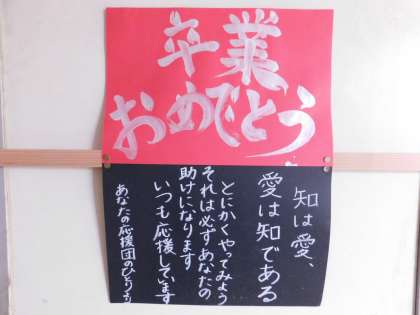 卒業
おめでとう
知は愛、
愛は知である
とにかくやってみよう
それは必ずあなたの
助けになります
いつも応援しています
あなたの応援団のひとりより